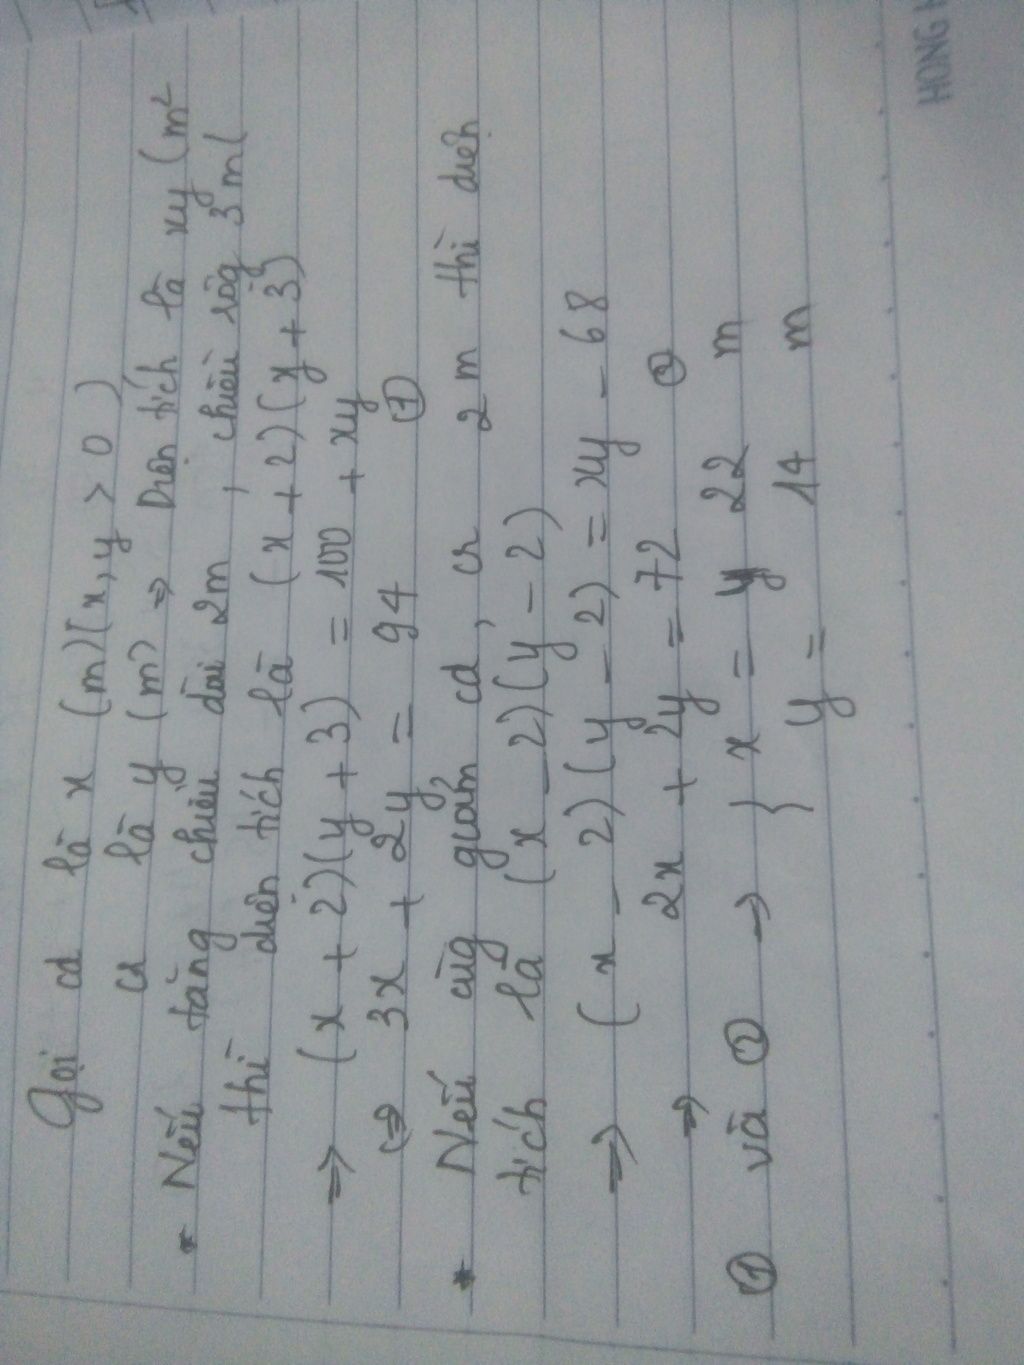 Gọi cd là x (m) (x, y > 0)
cr là y (m) => Diện tích là xy (m²
* Nếu tăng chiều dài 2m, chiều rộg 3m(
thì diện tích là (x + 2)(y + 3)
=> (x + 2)(y + 3) = 100 + xy
<=> 3x + 2y = 94 ①
* Nếu cùg giảm cd, cr 2 m thì diện
tích là (x - 2)(y - 2)
=> (x - 2)(y - 2) = xy - 68
=> 2x + 2y = 72 ②
① và ② => } x = 22 m
y = 14 m
HONG H